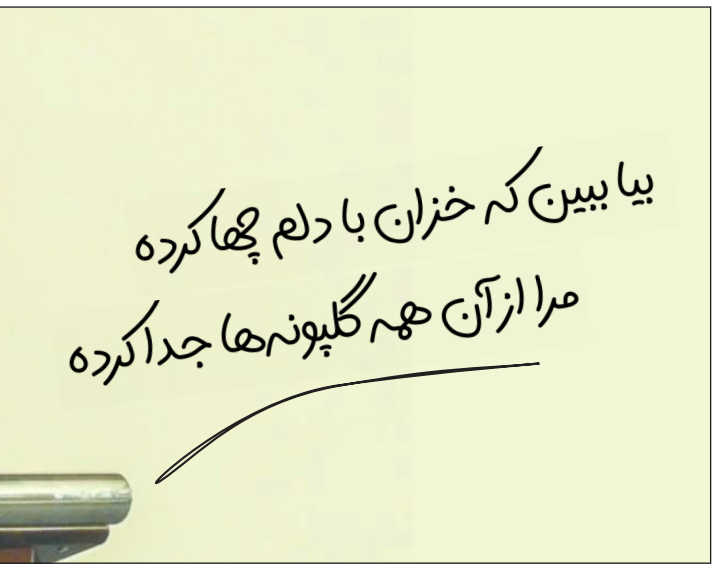 بیا ببین که خزان با دلم چها کرده
مرا از آن همه گلپونه‌ها جدا کرده